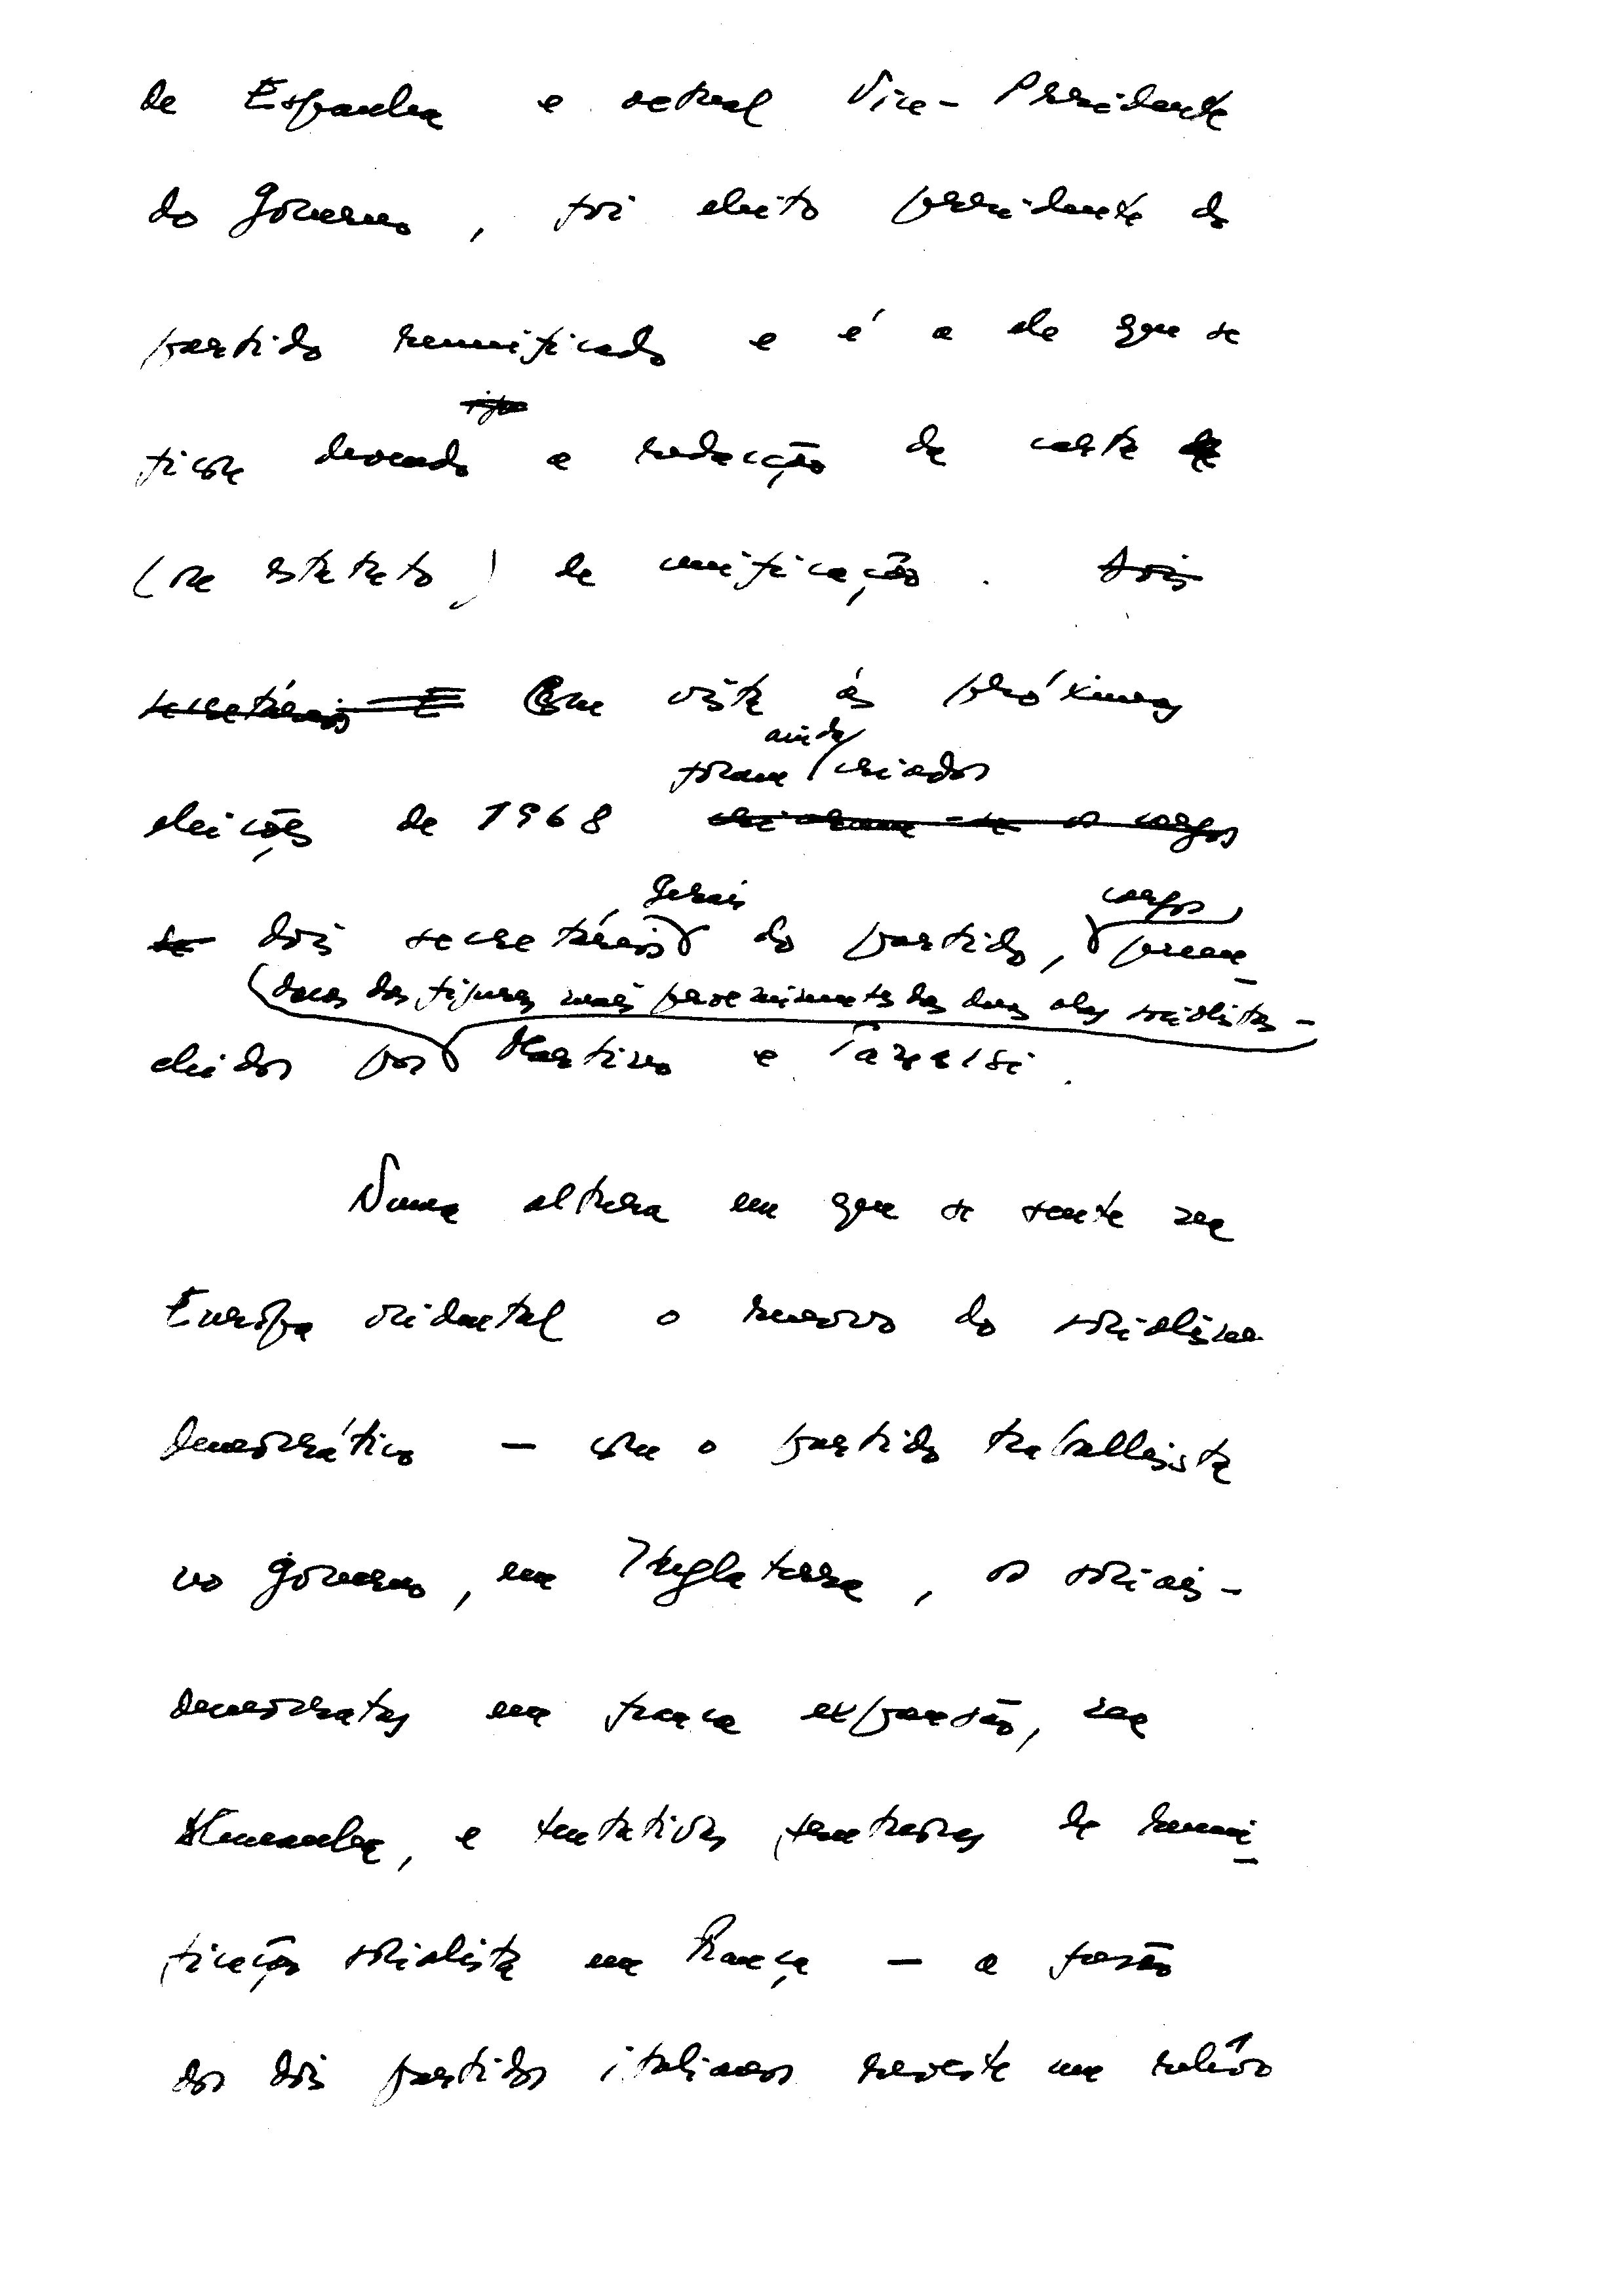 de Espanha e actual Vice-Presidente
do Governo, foi eleito presidente do
partido reunificado e é a ele que se
ficou devendo a redacção da carta
(ou estatuto) de unificação. dois
secretários E Em vista às próximas
ainda
foram criados
eleições de 1968 os cargos
de dois secretários gerais do partido, cargos preen-
(duas das figuras mais proeminentes das duas alas socialistas -
chidos por Martino e Tanassi.
Numa altura em que se sente na
Europa ocidental o renovo do socialismo
democrático — com o partido trabalhista
no governo, em Inglaterra, os sociais-
democratas em franca expansão, na
Alemanha, e tentativas frutuosas de reuni-
ficação socialista em França — a fusão
dos dois partidos italianos reveste um relêvo